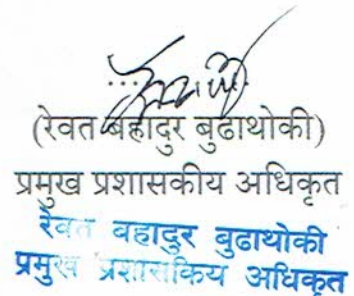 (रेवत बहादुर बुढाथोकी)
प्रमुख प्रशासकीय अधिकृत
रेवत बहादुर बुढाथोकी
प्रमुख प्रशासकिय अधिकृत